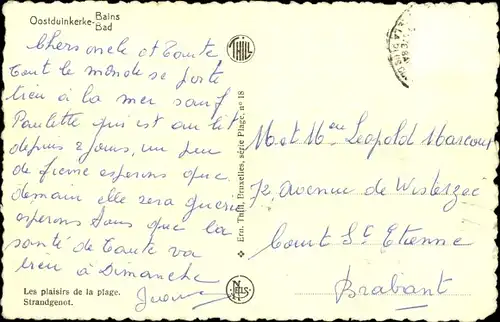 Oostduinkerke-Bains
Bad
Chers oncle et Tante
Tout le monde se porte
bien à la mer sauf
Paulette qui est au lit
depuis 2 jours, un peu
de fièvre espérons que
demain elle sera guérie
espérons que la
santé de Tante va
bien à Dimanche
Les plaisirs de la plage.
Strandgenot.
THILL
Ern. Thill, Bruxelles, série Plage, n° 18
NELS
M et Me Leopold Marcour
72, Avenue de Wisterzee
Court St Etienne
Brabant